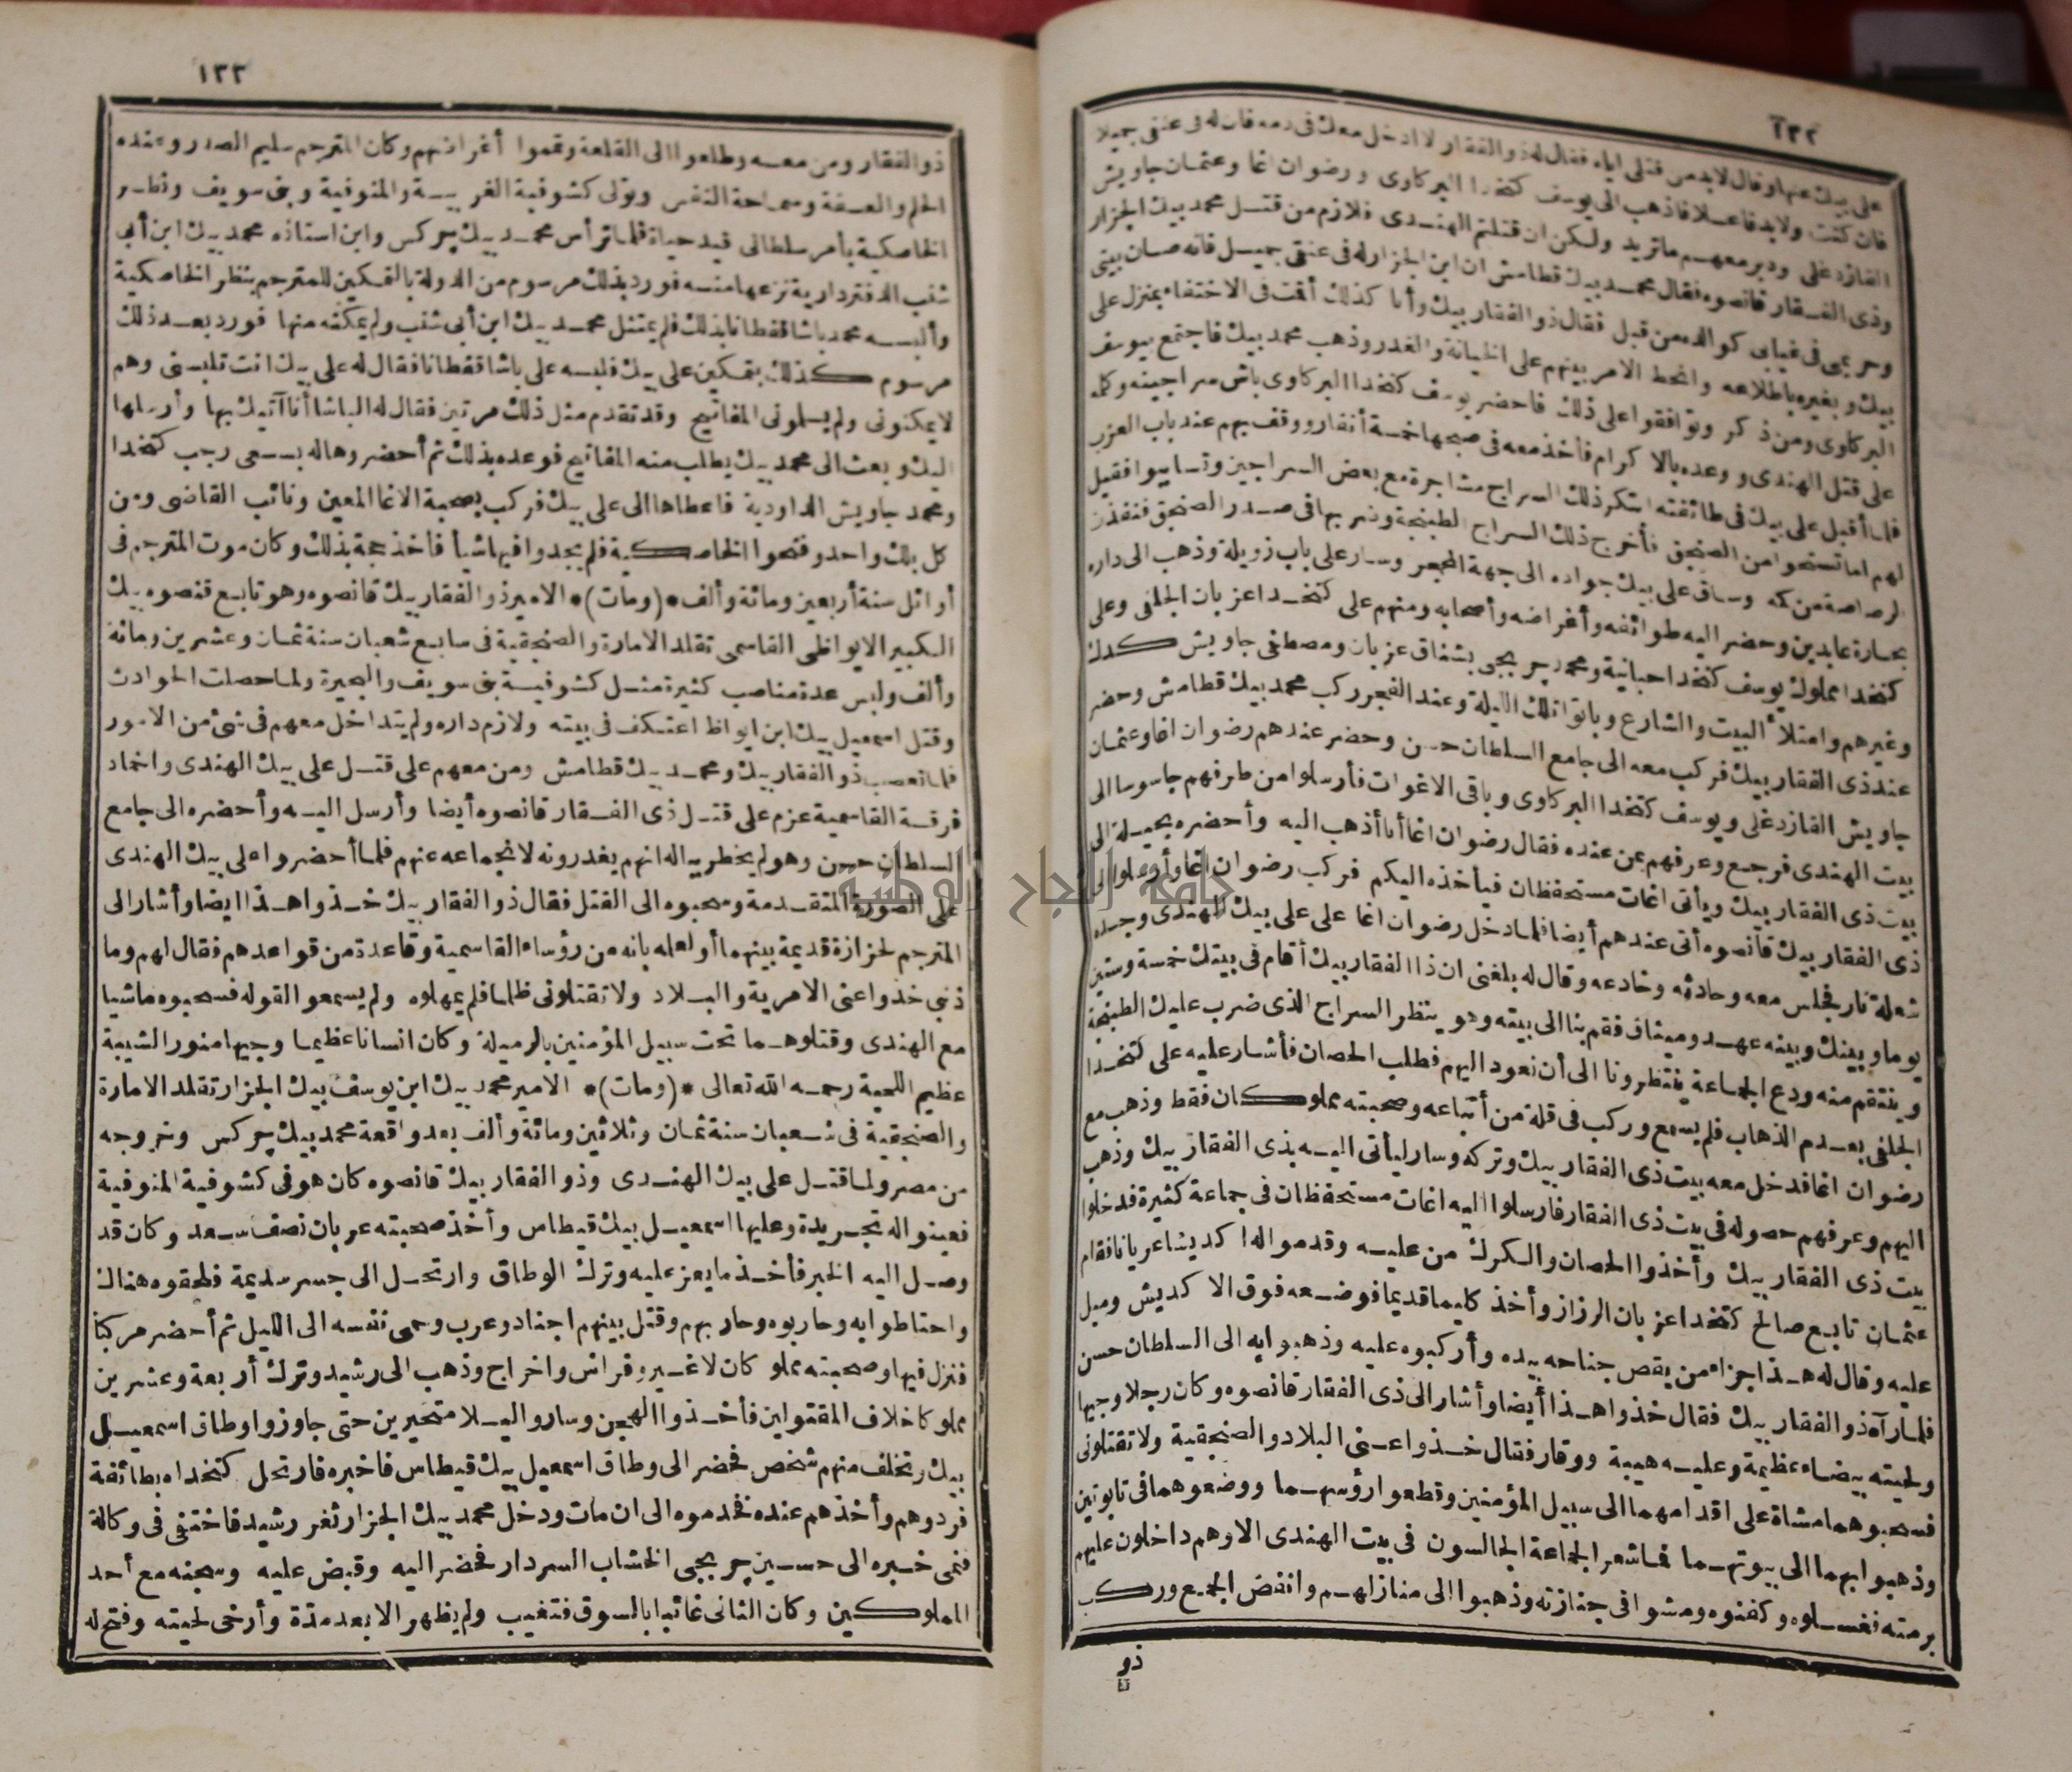 ١٣٢
على بيك عنها وقال لابد من قتلى اياه فقال له ذو الفقار لا ادخل معك فى دمه فان له فى عنقى جميلا
فان كنت ولابد فاعلا فاذهب الى يوسف كتخدا البركاوى ورضوان اغا وعثمان جاويش
القازدغلى ودبر معهم ما تريد ولكن ان قتلتم الهندى فلازم من قتل محمد بيك الجزار
وذى الفقار قانصوه فقال محمد بيك قطامش ان ابن الجزار له فى عنقى جميل فانه صان بيتى
وحريمى فى غيابى كوالده من قبل فقال ذو الفقار بيك وأنا كذلك أقت فى الاختفاء بمنزل على
بيك وبغيره باطلاعه وانحط الامر بينهم على الخيانة والغدر وذهب محمد بيك فاجتمع بيوسف
البركاوى ومن ذكر وتوافقوا على ذلك فاحضر يوسف كتخدا البركاوى باش سراجينه وكله
على قتل الهندى ووعده بالاكرام فأخذ معه فى صبحها خمسة أنفار ووقف بهم عند باب العزب
فلما أقبل على بيك فى طائفته ابتكر ذلك السراج مشاجرة مع بعض السراجين وتسابوا فقيل
لهم اما تستحوا من الصنجق فأخرج ذلك السراج الطبنجة وضربها فى صدر الصنجق فنفذت
الرصاصة من كمه وساق على بيك جواده الى جهة المحجر وسار على باب زويلة وذهب الى داره
بحارة عابدين وحضر اليه طوائفه وأغراضه وأصحابه ومنهم على كتخدا عزبان الجلفى وعلى
كتخدا مملوك يوسف كتخدا حبانية ومحمد جربجى بشناق عزبان ومصطفى جاويش كدك
وغيرهم وامتلأ البيت والشارع وباتوا تلك الليلة وعند الفجر ركب محمد بيك قطامش وحضر
عند ذى الفقار بيك فركب معه الى جامع السلطان حسن وحضر عندهم رضوان اغا وعثمان
جاويش القازدغلى ويوسف كتخدا البركاوى وباقى الاغوات فأرسلوا من طرفهم جاسوسا الى
بيت الهندى فرجع وعرفهم بمن عنده فقال رضوان اغا أنا أذهب اليه وأحضره بحيلة الى
بيت ذى الفقار بيك ويأتى اغات مستحفظان فيأخذه اليكم فركب رضوان اغا وأرسلوا الى
ذى الفقار بيك قانصوه أتى عندهم أيضا فلما دخل رضوان اغا على على بيك الهندى وجده
شعلة نار فجلس معه وحادثه وخادعه وقال له بلغنى ان ذا الفقار بيك أقام فى بيتك خمسة وستين
يوما وبينك وبينه عهد وميثاق فقم بنا الى بيته وهو ينظر السراج الذى ضرب عليك الطبنجة
وينتقم منه ودع الجماعة ينتظرونا الى أن نعود اليهم فطلب الحصان فأشار عليه على كتخدا
الجلفى بعدم الذهاب فلم يسمع وركب فى قلة من أتباعه وصحبته مملوكان فقط وذهب مع
رضوان اغا فدخل معه بيت ذى الفقار بيك وتركه وسار ليأتى اليه بذى الفقار بيك وذهب
اليهم وعرفهم حصوله فى بيت ذى الفقار فارسلوا اليه اغات مستحفظان فى جماعة كثيرة فدخلوا
بيت ذى الفقار بيك وأخذوا الحصان والكرك من عليه وقدموا له اكديشا عريانا فقام
عثمان تابع صالح كتخدا عزبان الرزاز وأخذ كليما قديما فوضعه فوق الاكديش وميل
عليه وقال له هذا جزاء من يقص جناحه بيده وأركبوه عليه وذهبوا به الى السلطان حسن
فلما رآه ذو الفقار بيك فقال خذوا هذا أيضا وأشار الى ذى الفقار قانصوه وكان رجلا وجيها
ولحيته بيضاء عظيمة وعليه هيبة ووقار فقال خذوا عنى البلاد والصنجقية ولا تقتلونى
فسحبوهما مشاة على اقدامهما الى سبيل المؤمنين وقطعوا رؤسهما ووضعوهما فى تابوتين
وذهبوا بهما الى بيوتهما فما شعر الجماعة الجالسون فى بيت الهندى الا وهم داخلون عليهم
برمته فغسلوه وكفنوه ومشوا فى جنازته وذهبوا الى منازلهم وانفض الجمع وركب
ذو
١٣٣
ذو الفقار ومن معه وطلعوا الى القلعة وتمموا أغراضهم وكان المترجم سليم الصدر وعنده
الحلم والعفة وسماحة النفس وتولى كشوفية الغربية والمنوفية وبنى سويف ونظر
الخاصكية بأمر سلطانى قيد حياة فلما ترأس محمد بيك چركس وابن استاذه محمد بيك ابن أبى
شنب الدفتردارية نزعها منه فورد بذلك مرسوم من الدولة بالتمكين للمترجم بنظر الخاصكية
وألبسه محمد باشا قفطانا بذلك فلم يمتثل محمد بيك ابن أبى شنب ولم يمكنه منها فورد بعد ذلك
مرسوم كذلك بتمكين على بيك فلبسه على باشا قفطانا فقال له على بيك انت تلبسنى وهم
لا يمكنونى ولم يسلمونى المفاتيح وقد تقدم مثل ذلك مرتين فقال له الباشا أنا آتيك بها وأرسلها
اليك وبعث الى محمد بيك يطلب منه المفاتيح فوعده بذلك ثم أحضروها له بسعى رجب كتخدا
ومحمد جاويش الداودية فاعطاها الى على بيك فركب بصحبة الاغا المعين ونائب القاضى ومن
كل بلك واحد وفتحوا الخاصكية فلم يجدوا فيها شيأ فأخذ حجة بذلك وكان موت المترجم فى
أوائل سنة أربعين ومائة وألف *(ومات)* الامير ذو الفقار بيك قانصوه وهو تابع قنصوه بيك
الكبير الايواظى القاسمى تقلد الامارة والصنجقية فى سابع شعبان سنة ثمان وعشرين ومائة
وألف ولبس عدة مناصب كثيرة مثل كشوفية بنى سويف والبحيرة ولما حصلت الحوادث
وقتل اسمعيل بيك ابن ايواظ اعتكف فى بيته ولازم داره ولم يتداخل معهم فى شئ من الامور
فلما تعصب ذو الفقار بيك ومحمد بيك قطامش ومن معهم على قتل على بيك الهندى واخماد
فرقة القاسمية عزم على قتل ذى الفقار قانصوه أيضا وأرسل اليه وأحضره الى جامع
السلطان حسن وهو لم يخطر بباله انهم يغدرونه لانجماعه عنهم فلما أحضروا على بيك الهندى
على الصورة المتقدمة وسحبوه الى القتل فقال ذو الفقار بيك خذوا هذا ايضا وأشار الى
المترجم لحزازة قديمة بينهما أو لعله بانه من رؤساء القاسمية وقاعدة من قواعدهم فقال لهم وما
ذنبى خذوا عنى الامرية والبلاد ولا تقتلونى ظلما فلم يمهلوه ولم يسمعوا لقوله فسحبوه ماشيا
مع الهندى وقتلوهما تحت سبيل المؤمنين بالرميلة وكان انسانا عظيما وجيها منور الشيبة
عظيم اللحية رحمه الله تعالى *(ومات)* الامير محمد بيك ابن يوسف بيك الجزار تقلد الامارة
والصنجقية فى شعبان سنة ثمان وثلاثين ومائة وألف بعد واقعة محمد بيك چركس وخروجه
من مصر ولما قتل على بيك الهندى وذو الفقار بيك قانصوه كان هو فى كشوفية المنوفية
فعينوا له تجريدة وعليها اسمعيل بيك قيطاس وأخذ صحبته عربان نصف سعد وكان قد
وصل اليه الخبر فأخذ ما يعز عليه وترك الوطاق وارتحل الى جسر سديمة فلحقوه هناك
واحتاطوا به وحاربوه وحاربهم وقتل بينهم اجناد وعرب وحمى نفسه الى الليل ثم أحضر مركبا
فنزل فيها وصحبته مملوكان لا غير وفراش واخراج وذهب الى رشيد وترك أربعة وعشرين
مملوكا خلاف المقتولين فأخذوا الهجن وساروا ليلا متحيرين حتى جاوزوا وطاق اسمعيل
بيك وتخلف منهم شخص فحضر الى وطاق اسمعيل بيك قيطاس فاخبره فارتحل كتخداه بطائفة
فردوهم وأخذهم عنده فخدموه الى ان مات ودخل محمد بيك الجزار ثغر رشيد فاختفى فى وكالة
فنمى خبره الى حسين جربجى الخشاب السردار فحضر اليه وقبض عليه وسجنه مع أحد
المملوكين وكان الثانى غائبا بالسوق فتغيب ولم يظهر الا بعد مدة وأرخى لحيته وفتح له
جامعة النجاح الوطنية